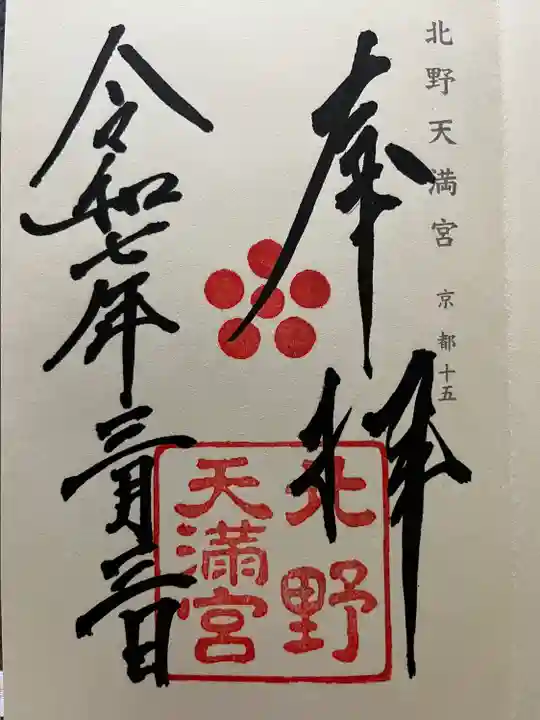 北野天満宮 京都十五
奉拝
北野
天満宮
令和七年三月三日